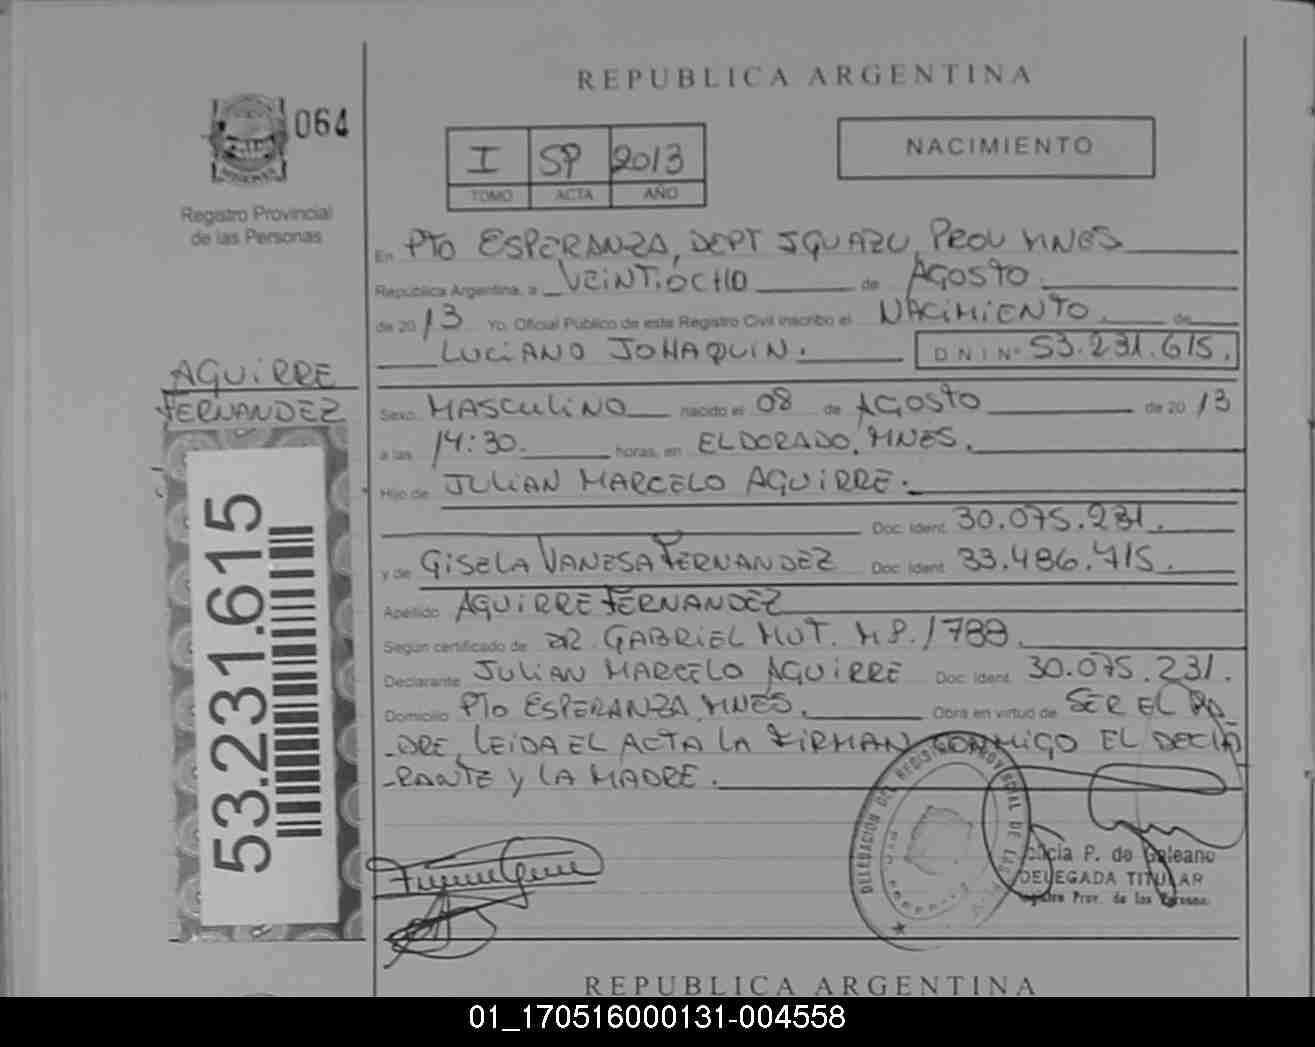 REPUBLICA ARGENTINA
064
I SP 2013
TOMO ACTA AÑO
NACIMIENTO
Registro Provincial
de las Personas
En PTO ESPERANZA, DEPT IGUAZU, PROV MNES
República Argentina, a VEINTIOCHO de AGOSTO
de 2013 Yo, Oficial Público de este Registro Civil inscribo el NACIMIENTO de
LUCIANO JOHAQUIN. D N I Nº 53.231.615.
AGUIRRE
FERNANDEZ
Sexo MASCULINO nacido el 08 de AGOSTO de 2013
a las 14:30. horas, en ELDORADO, MNES.
Hijo de JULIAN MARCELO AGUIRRE.
Doc. Ident. 30.075.231.
y de GISELA VANESA FERNANDEZ Doc. Ident. 33.486.715.
Apellido AGUIRRE FERNANDEZ
Según certificado de DR. GABRIEL MUT. M P. 1788.
Declarante JULIAN MARCELO AGUIRRE Doc. Ident. 30.075.231.
Domicilio PTO ESPERANZA, MNES. Obra en virtud de SER EL PA-
-DRE, LEIDA EL ACTA LA FIRMAN CONMIGO EL DECLA
-RANTE Y LA MADRE.
53.231.615
DELEGACION DEL REGISTRO PROVINCIAL DE LAS
P. de Galeano
DELEGADA TITULAR
Registro Prov. de las Personas
REPUBLICA ARGENTINA
01_170516000131-004558